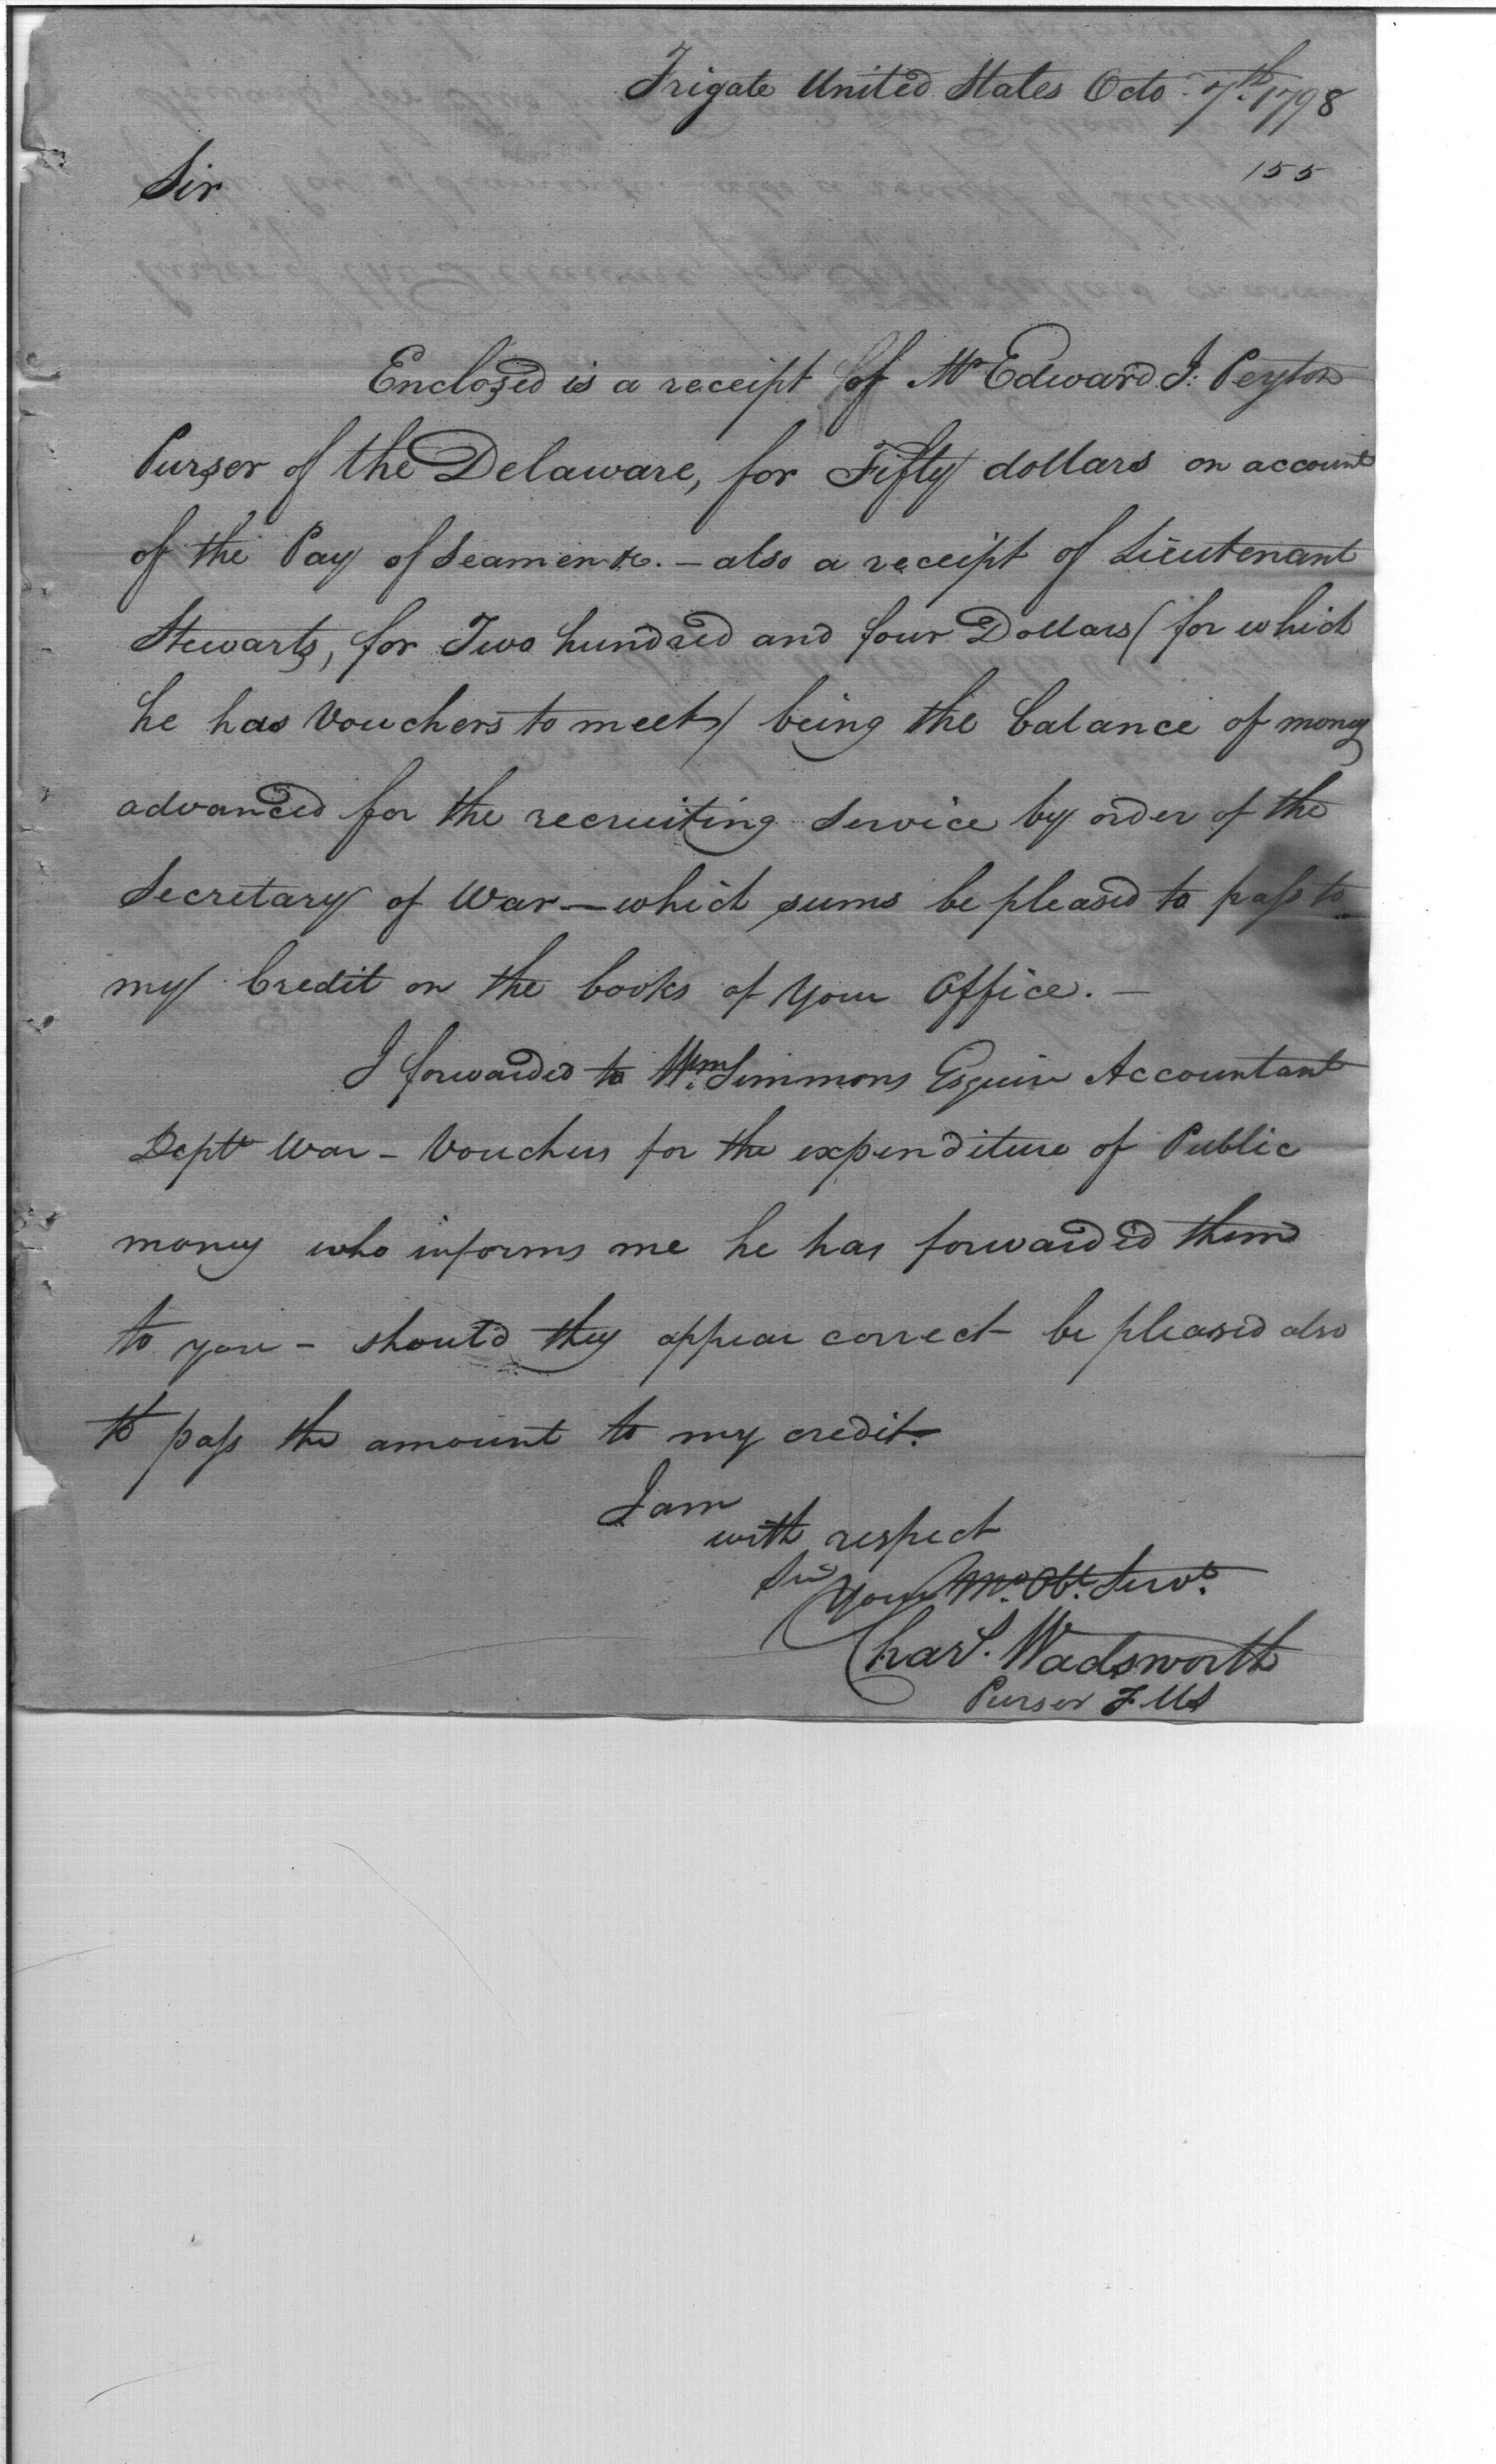 Frigate United States Octo. 7th. 1798
155
Sir
Enclosed is a receipt of Mr Edward J: Peyton
Purser of the Delaware, for Fifty dollars on account
of the Pay of Seamen &c. - also a receipt of Lieutenant
Stewarts, for Two hundred and four Dollars (for which
he has Vouchers to meet) being the balance of money
advanced for the recruiting service by order of the
Secretary of War - which sums be pleased to pass to
my Credit on the books of your Office. -
I forwarded to Wm. Simmons Esquire Accountant
Dept War - Vouchers for the expenditure of Public
money who informs me he has forwarded them
to you - should they appear correct be pleased also
to pass the amount to my credit.
I am
with respect
Sir
Your Mo. Obt. Servt.
Chas. Wadsworth
Purser F US